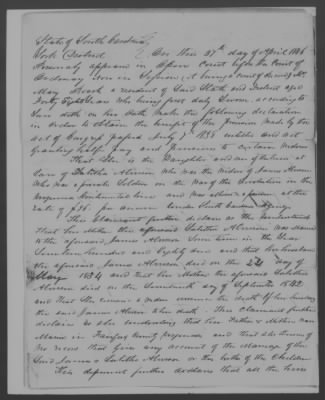 State of South Carolina
York District On this 27th day of April 1846
Personally appeared in Open Court before the Court of
Ordinary now in Session, it being a court of Record, Mrs
Mary Roark a resident of Said State and District aged
Forty Eight Years Who being first duly Sworn according to
Law doth on her Oath Make the following declaration
in Order to Obtain the benefit of the provision Made by the
Act of Congress passed July 7th 1838 entitled An Act
granting half pay and pensions to certain Widows
That She is the Daughter and one of the heirs at
Law of Talitha Alverson Who was the Widow of James Alverson
Who was a private Soldier in the War of the Revolution in the
Virginia Continental line and Was allowed a pension at the
rate of $96. per annum under South Carolina Agency.
This Claimant further declares
that her Mother the aforesaid Talitha Alverson Was Married
to the aforesaid James Alverson Some time in the Year
Seventeen Hundred and Eighty and that her husband
the aforesaid James Alverson died on the 22 day of
May 1834 and that her Mother the aforesaid Talitha
Alverson died on the day of September 1842
and that She remained a widow until her death
the said James Alverson This Claimant further
declares that her Father & Mother was
Married in Fairfax County Virginia and that She knows of
no record that gives any account of the Marriage of the
Said James & Talitha Alverson or the births of the Children
This deponent further declares that all the heirs